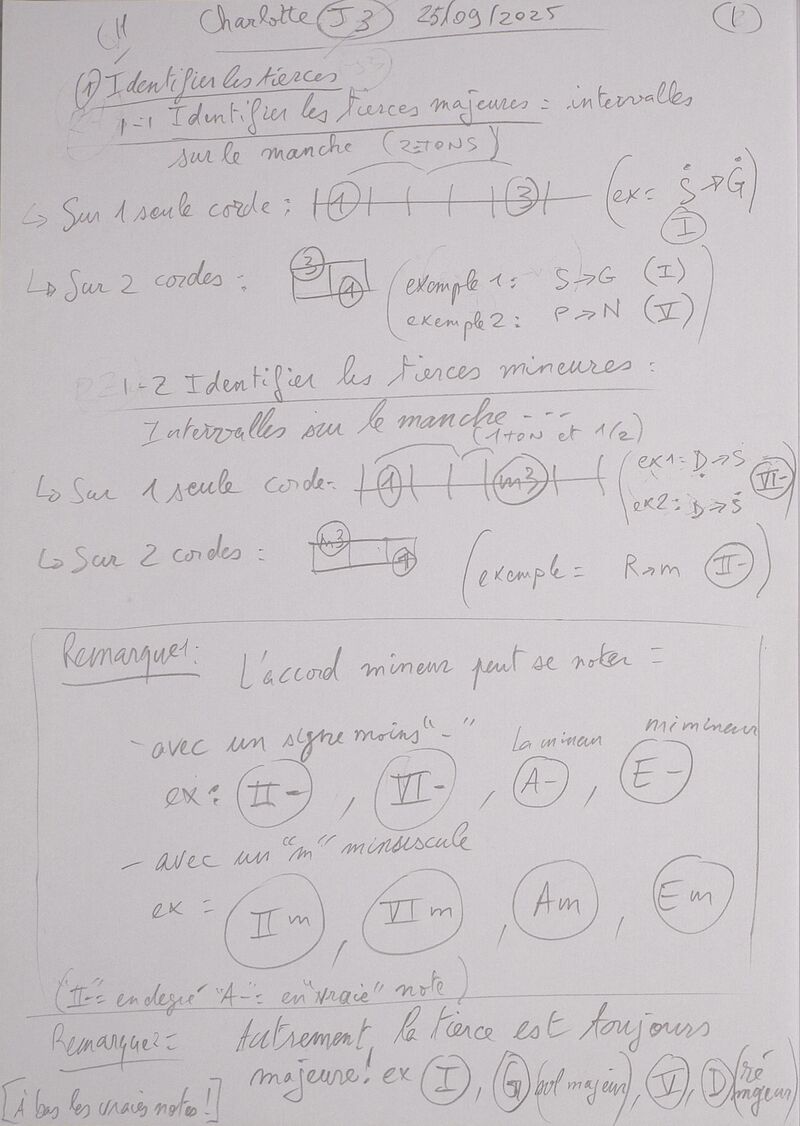 Charlotte J3 25/09/2025
(1) Identifier les tierces
1-1 Identifier les tierces majeures = intervalles
sur le manche (2 TONS)
↳ Sur 1 seule corde : 1 3 (ex = S → G)
I
↳ Sur 2 cordes : 3 1 (exemple 1 : S → G (I)
exemple 2 : P → N (V))
1-2 Identifier les tierces mineures :
Intervalles sur le manche ---
(1 TON et 1/2)
↳ Sur 1 seule corde = 1 m3 (ex1 = D → S
ex2 = D → S) VI-
↳ Sur 2 cordes : m3 1 (exemple = R → m II-)
Remarque 1 : L'accord mineur peut se noter =
- avec un signe moins "-" La mineur mi mineur
ex : II- , VI- , A- , E-
- avec un "m" minsuscule
ex = IIm , VIm , Am , Em
("II-" = en degré "A-" = en "vraie" note)
Remarque 2 = Autrement, la tierce est toujours
majeure ! ex I , G (sol majeur), V , D (ré majeur)
[À bas les vraies notes !]